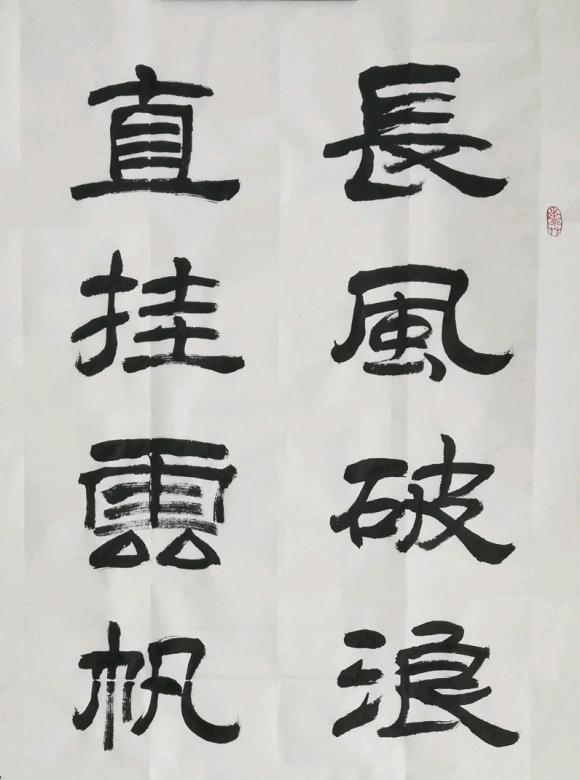 長風破浪
直挂雲帆